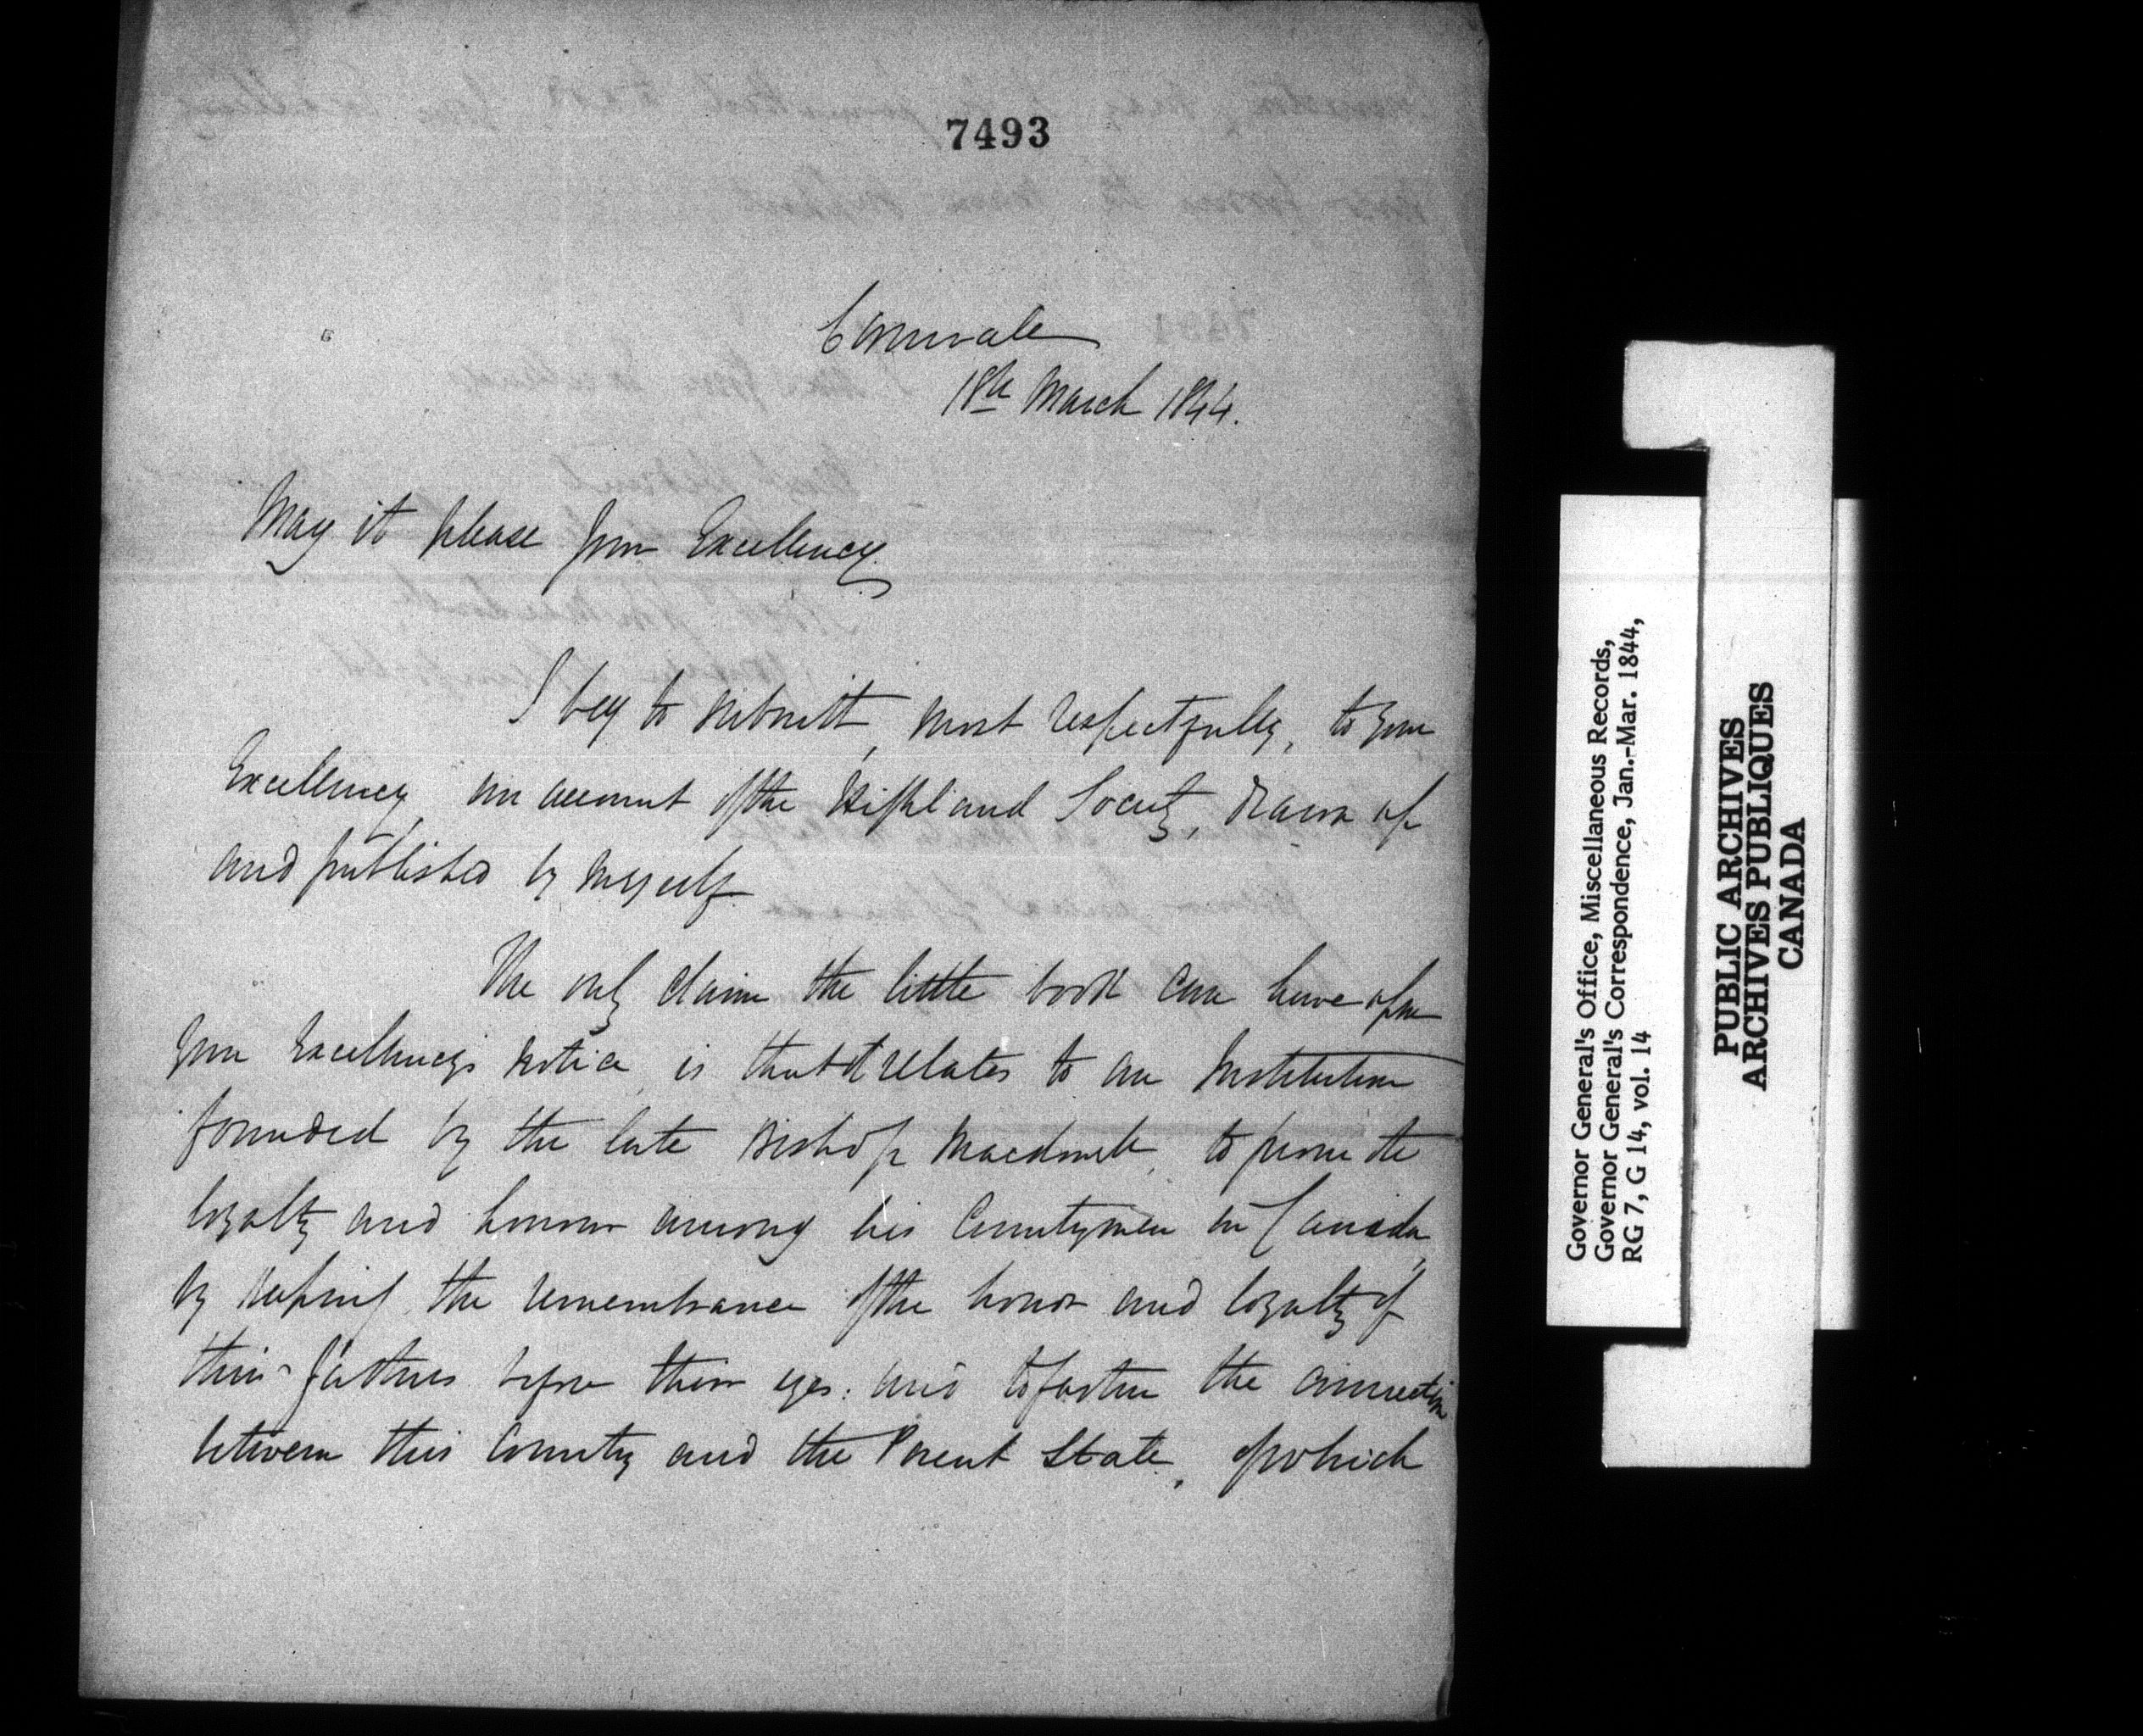 7493
Cornwall
18th March 1844.
May it please Your Excellency
I beg to submitt, most respectfully, to your
Excellency, an account of the Highland Society, drawn up
and published by myself.
The only claim the little book can have upon
Your Excellency's notice, is that it relates to an Institution
founded by the late Bishop Macdonell, to promote
loyalty and honour among his Countrymen in Canada,
by keeping the remembrance of the honor and loyalty of
their fathers before their eyes: and to fasten the connection
between this Country and the Parent State, of which
Governor General's Office, Miscellaneous Records,
Governor General's Correspondence, Jan.-Mar. 1844,
RG 7, G 14, vol. 14
PUBLIC ARCHIVES
ARCHIVES PUBLIQUES
CANADA